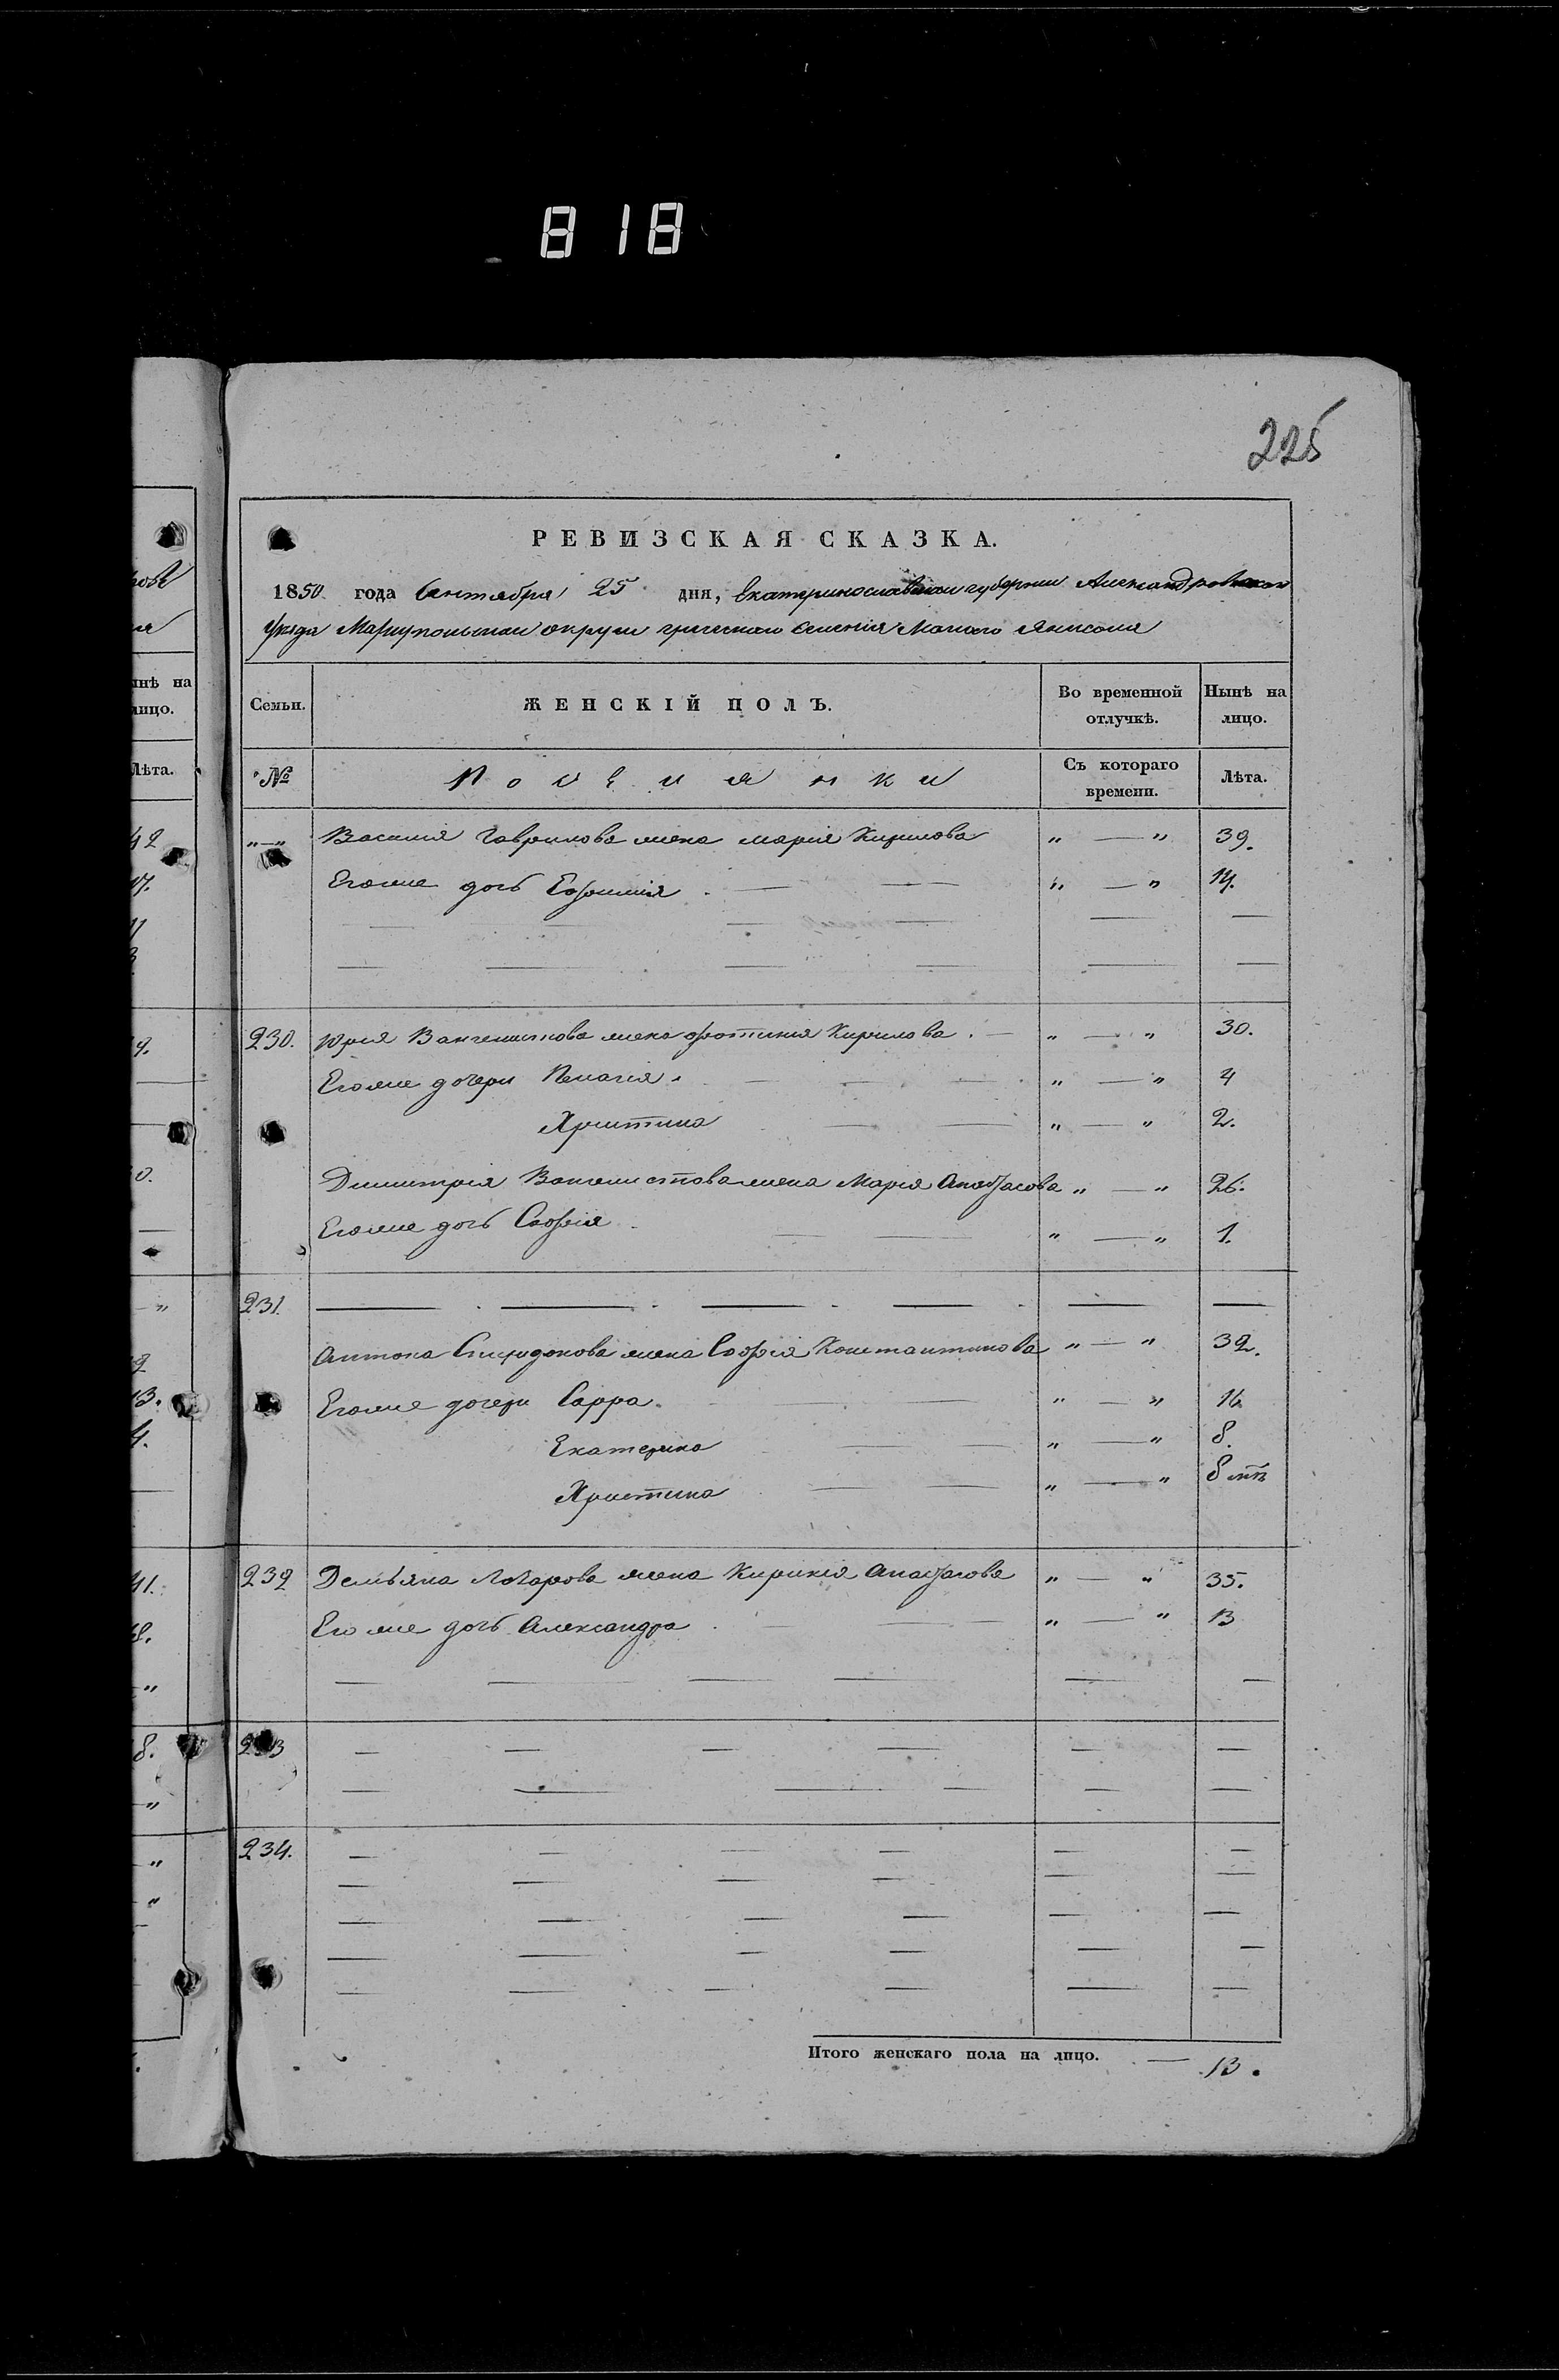 818
225
РЕВИЗСКАЯ СКАЗКА.
1850 года Сентября 25 дня, Екатеринославской губернии Александровскаго
Уезда Мариупольскаго округа греческаго Селенія Малаго Янисоля
Семьи. ЖЕНСКІЙ ПОЛЪ. Во временной отлучкѣ. Нынѣ на лицо.
№ Поселянки Съ котораго времени. Лѣта.
"—" Василия Гаврилова жена Марія Кирилова " — " 39.
Егоже дочь Ефимия " — " 14.
230. Юрия Вангелистова жена Фотиния Кирилова. " — " 30.
Егоже дочери Пелагия. " — " 4
Христина " — " 2.
Димитрия Вангелистова жена Мария Анастасова " — " 26.
Егоже дочь София " — " 1.
231.
Антона Спиридонова жена София Константинова " — " 32.
Егоже дочери Сарра " — " 16
Екатерина " — " 8.
Христина " — " 8
232 Демьяна Лазарова жена Кирикия Анастасова " — " 35.
Егоже дочь Александра " — " 13
233
234.
Итого женскаго пола на лицо. — 13.
нѣ на
лицо.
Лѣта.